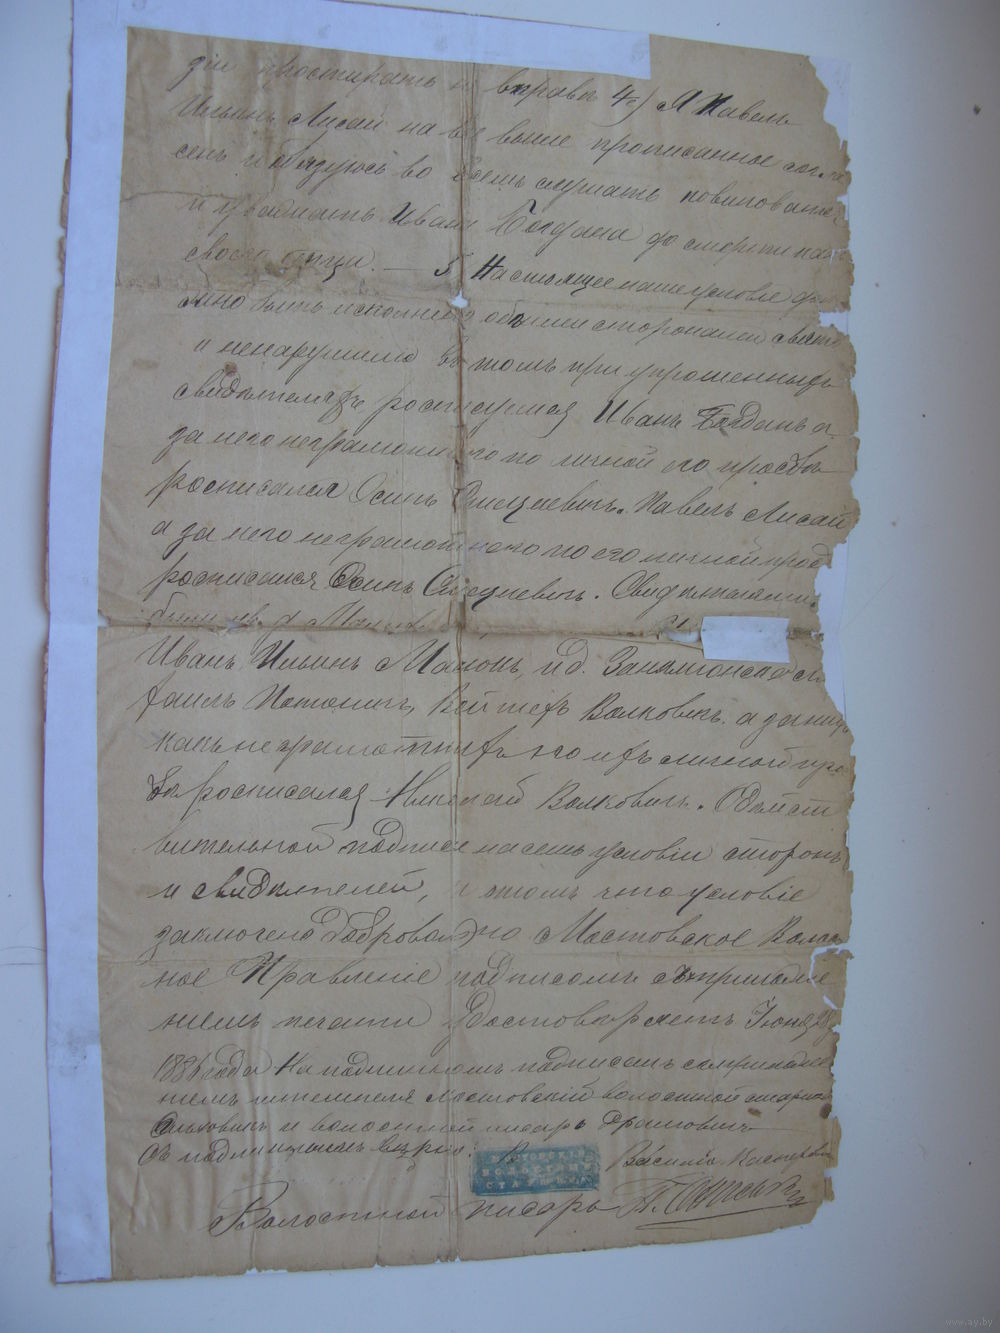 зіи простирать не вправѣ 4е) Я Павелъ
Ильинъ Лисай на все выше прописанное согла
сенъ и обязуюсь во всемъ слушать повиноваться
и уважать Ивана Богдана до смерти какъ
своего отца. — 5. Настоящее наше условіе дол
жно быть исполнено обѣими сторонами свято
и ненарушимо въ томъ при упрошенныхъ
свидѣтеляхъ росписуемся Иванъ Богданъ а
за него неграмотнаго по личной его просьбѣ
росписался Осипъ Павелъ Лисай
а за него неграмотнаго по его личной прось
росписался Осипъ Свидѣтелями
были
Иванъ Ильинъ Мамонъ, и д.
фаилъ Войтехъ Волковичъ. а за нихъ
какъ неграмотныхъ по ихъ личной про
бѣ росписался Николай Волковичъ. О дѣйст
вительной подписи на семъ условіи сторонъ
и свидѣтелей, и томъ что условіе
заключено добровольно Мостовское Волост
ное Правленіе подписомъ съ приложе
ніемъ печати удостовѣряетъ Іюня
188 года На подлинномъ подписалъ съ приложе
ніемъ штемпеля Мостовскій волостной старшина
и волостной писарь
Съ подлиннымъ вѣрно:
МОСТОВСКІЙ
ВОЛОСТНЫЙ
СТАРШИНА
Василій
Волостной писарь
www.ay.by